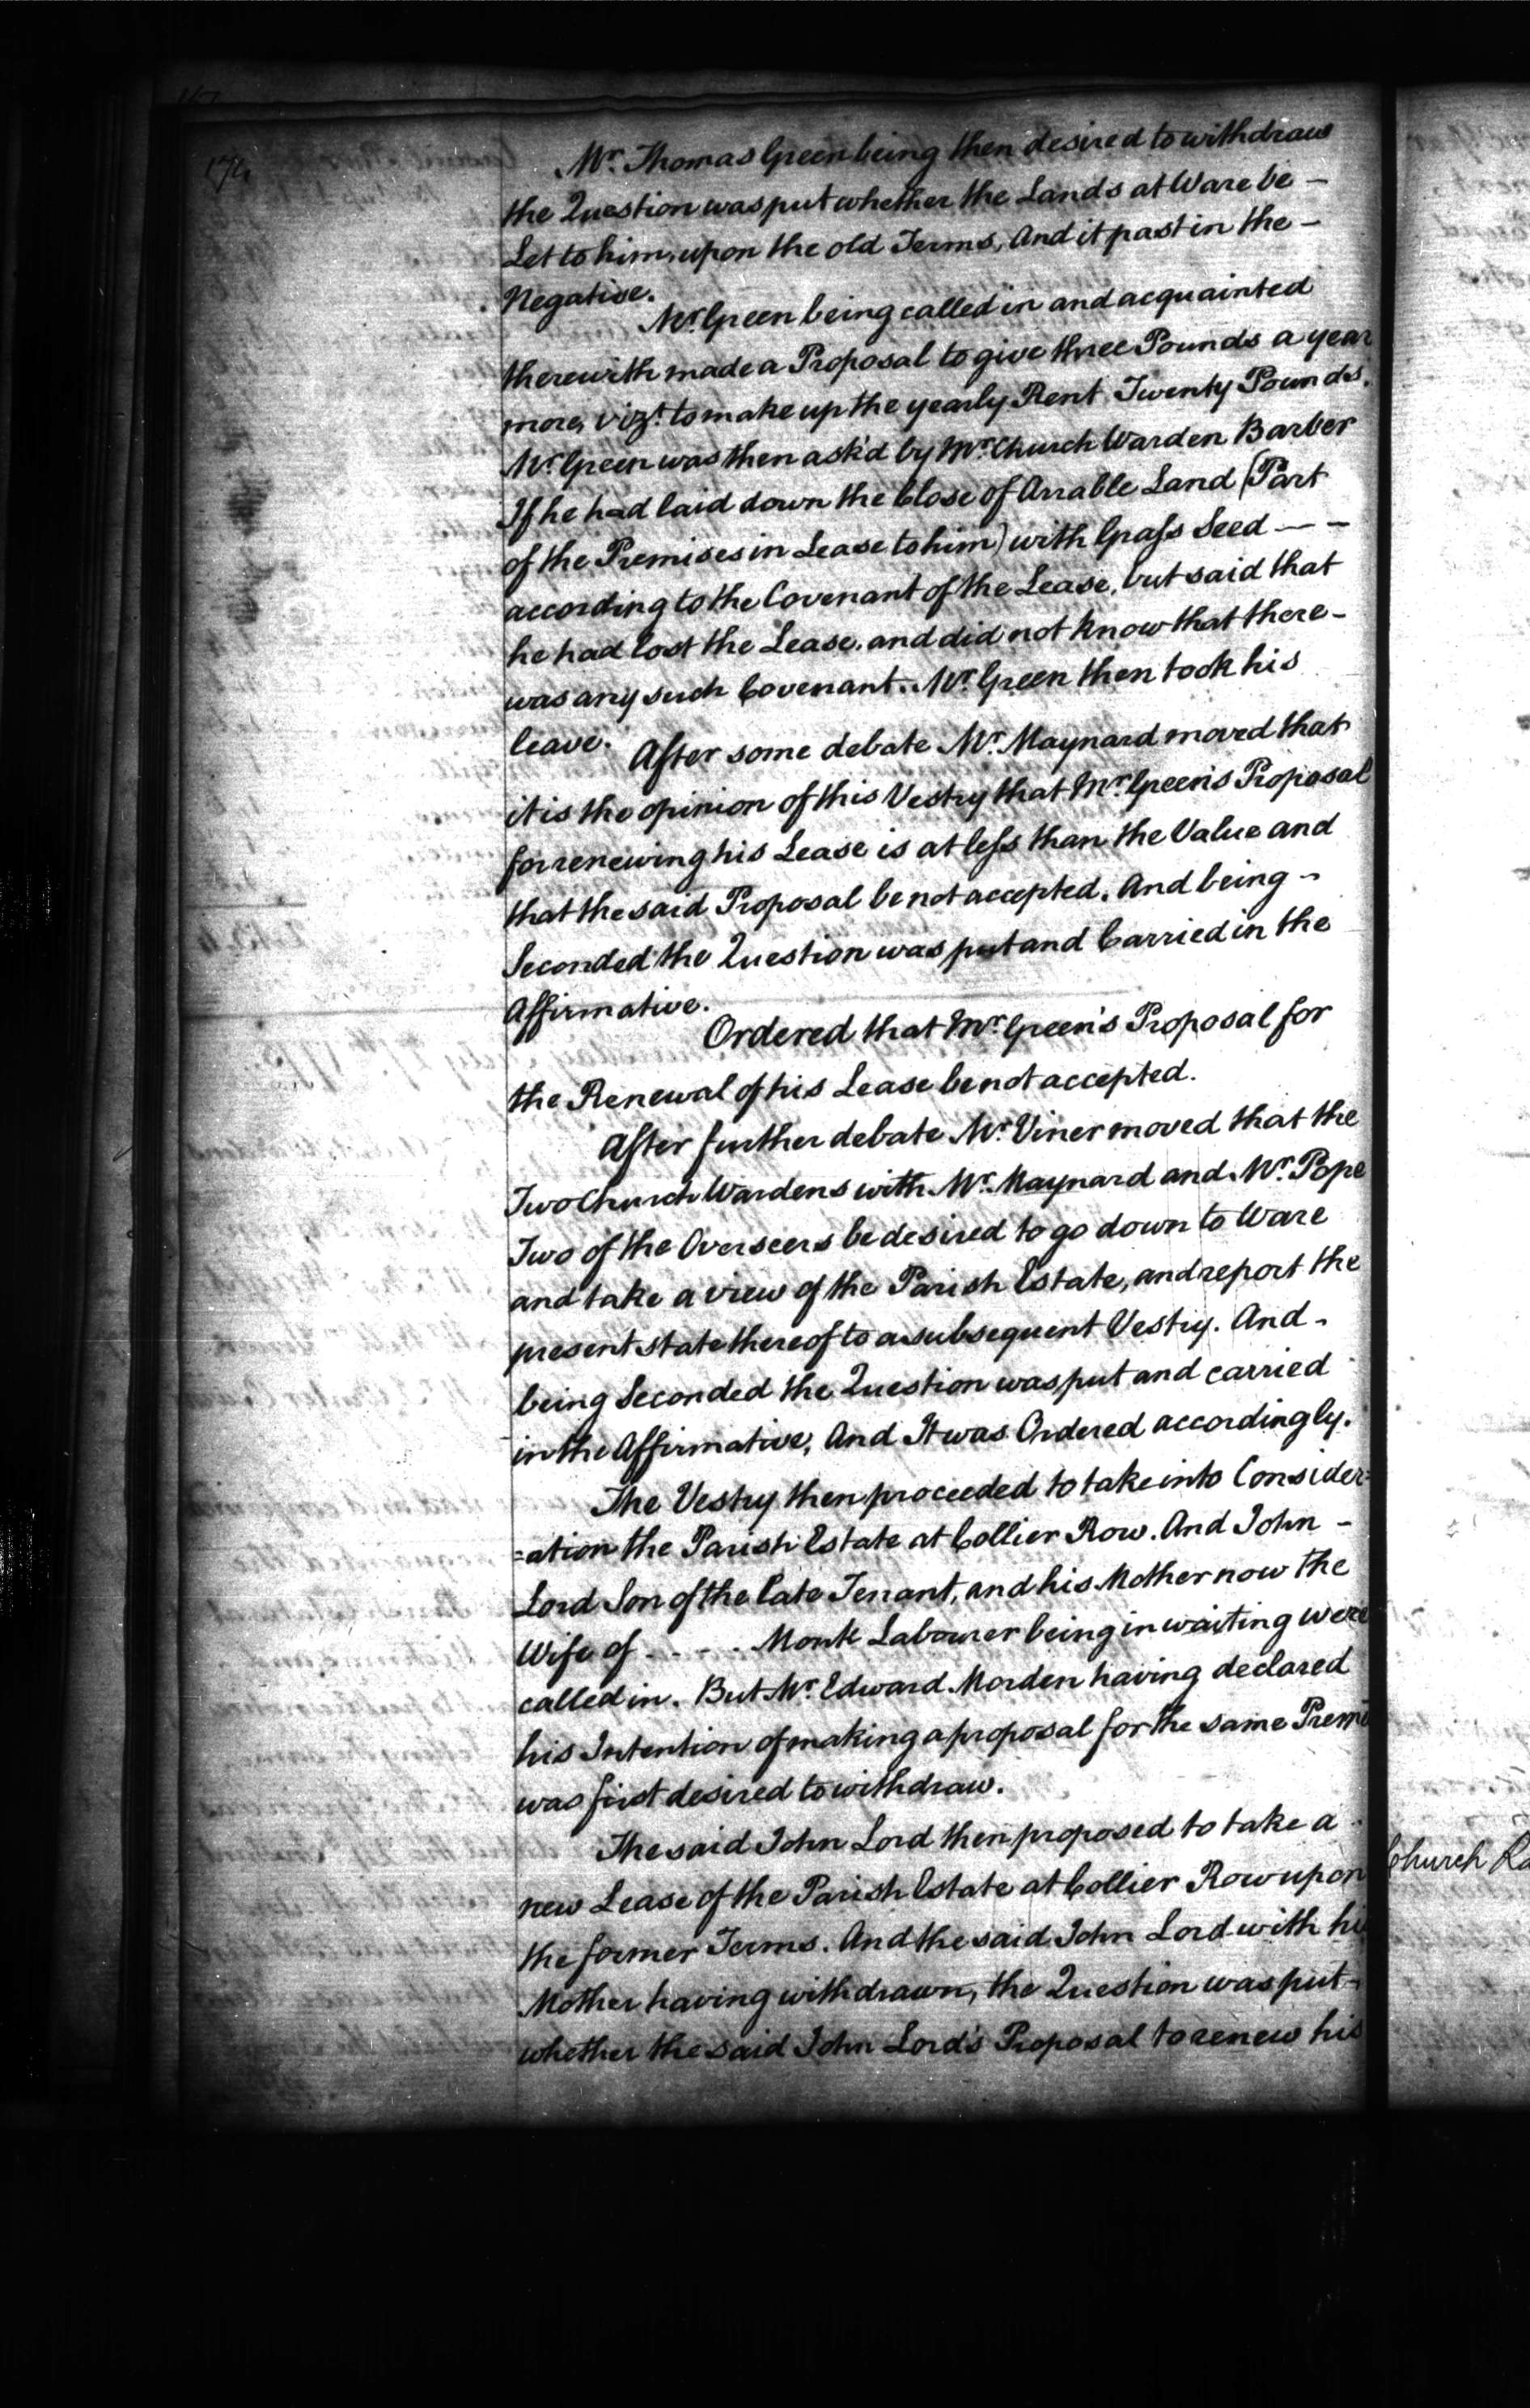 174
Mr. Thomas Green being then desired to withdraw
the Question was put whether the Lands at Ware be -
Let to him, upon the old Terms, And it past in the -
Negative.
Mr. Green being called in and acquainted
therewith made a Proposal to give three Pounds a year
more, vizt. to make up the yearly Rent Twenty Pounds.
Mr. Green was then ask'd by Mr. Church Warden Barber
If he had laid down the Close of Arrable Land (Part
of the Premises in Lease to him) with Grass Seed - -
according to the Covenant of the Lease, but said that
he had lost the Lease, and did not know that there -
was any such Covenant. Mr. Green then took his
leave.
After some debate Mr. Maynard moved that
it is the opinion of this Vestry that Mr. Green's Proposal
for renewing his Lease is at less than the Value and
that the said Proposal be not accepted. And being -
Seconded the Question was put and Carried in the
Affirmative.
Ordered that Mr. Green's Proposal for
the Renewal of his Lease be not accepted.
After further debate Mr. Viner moved that the
Two Church Wardens with Mr. Maynard and Mr. Pope
Two of the Overseers be desired to go down to Ware
and take a view of the Parish Estate, and report the
present state thereof to a subsequent Vestry. And -
being Seconded the Question was put and carried
in the Affirmative, And It was Ordered accordingly.
The Vestry then proceeded to take into Consider=
=ation the Parish Estate at Collier Row. And John -
Lord Son of the late Tenant, and his Mother now the
Wife of - - - . Monk Labourer being in waiting were
called in. But Mr. Edward Morden having declared
his Intention of making a proposal for the same Premi
was first desired to withdraw.
The said John Lord then proposed to take a
new Lease of the Parish Estate at Collier Row upon
the former Terms. And the said John Lord with hi
Mother having withdrawn, the Question was put -
whether the said John Lord's Proposal to renew his
Church Ra